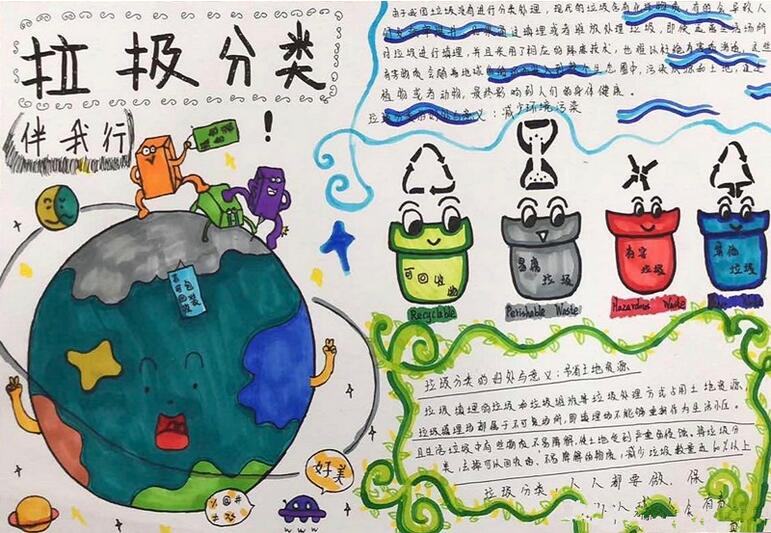 垃圾分类
伴我行！
由于我国垃圾没有进行分类处理，现代的垃圾含有化学物质，有的会导致人们
填埋或者堆放处理垃圾，即使远离生活场所
对垃圾进行填埋，并且采用了相应的隔离技术，也难以杜绝有害物质渗透，这些
有害物质会随着地球的 到整个生态圈中，污染水源和土地，通过
植物或者动物，最终影响到人们的身体健康。
垃圾分类的好处与意义：减少环境污染
不可回收
包装
可回收物
Recyclable
易腐垃圾
Perishable Waste
有害垃圾
Hazardous Waste
其他垃圾
好美
%@#
垃圾分类的好处与意义：节省土地资源
垃圾填埋和垃圾堆放等垃圾处理方式占用土地资源，
垃圾填埋场都属于不可复场所，即填埋场不能够重新作为生活小区。
且生活垃圾中有些物质不易降解，使土地受到严重的侵蚀。将垃圾分
类，去掉可以回收的、不易降解的物质，减少垃圾数量达60%以上
垃圾分类 人人都要做、保